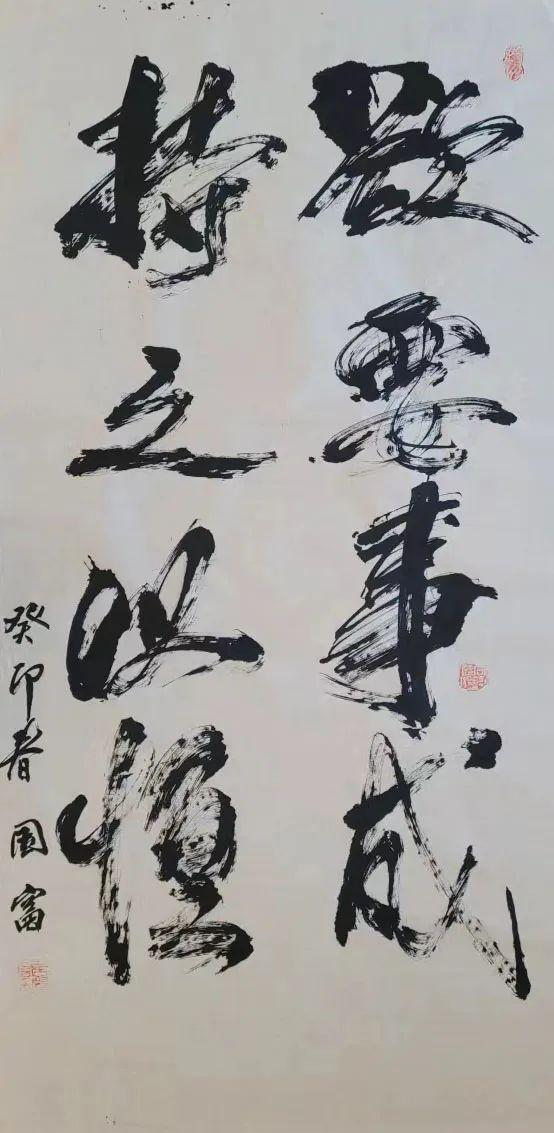 欲要事成
持之以恒
癸卯春 国富